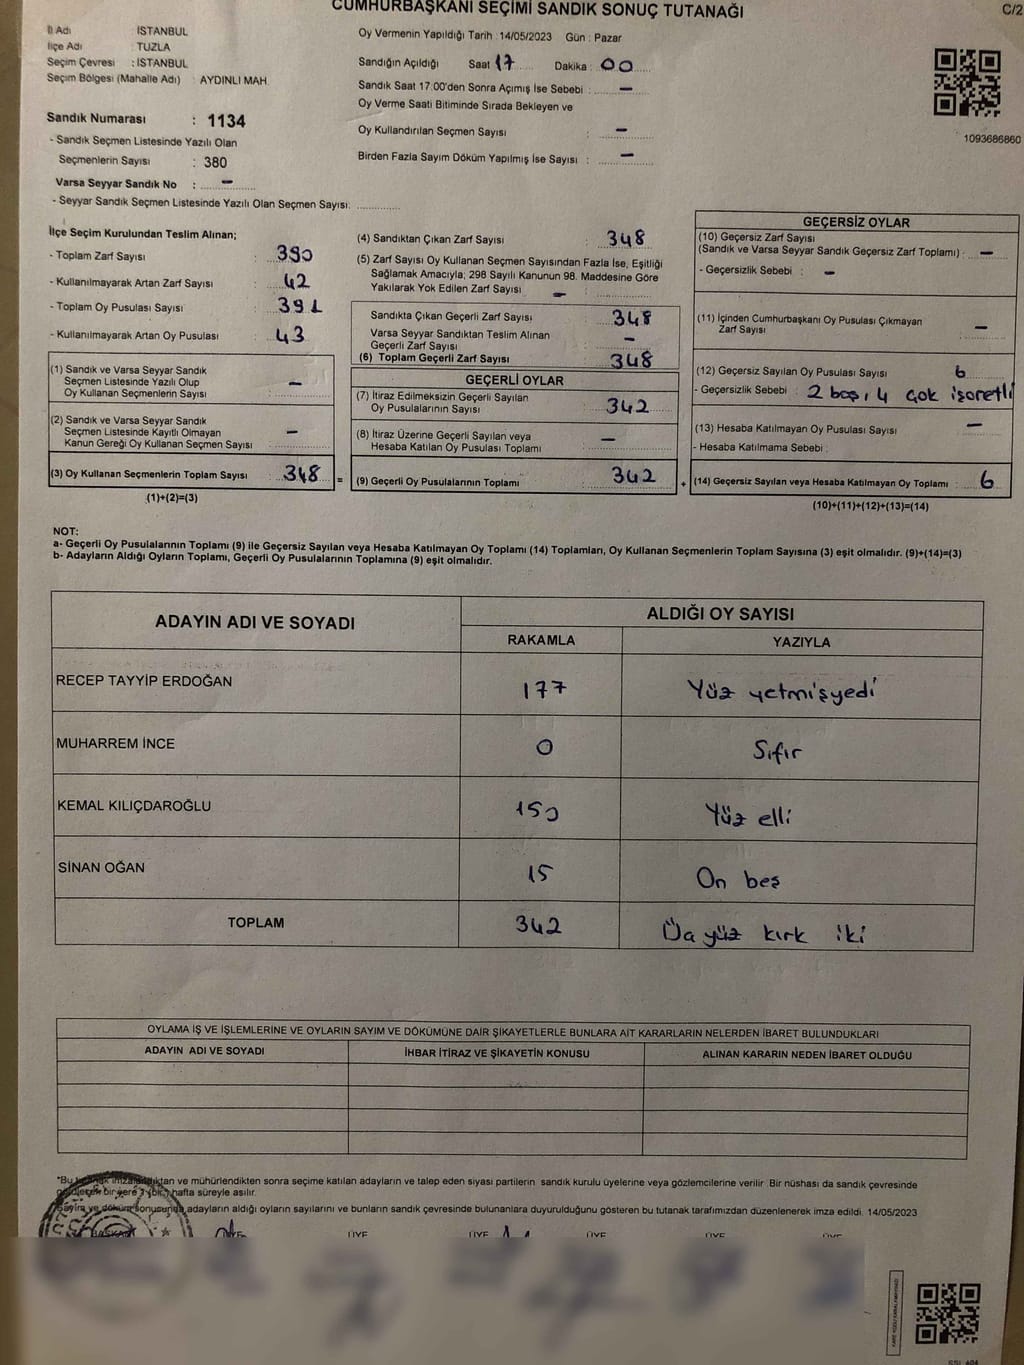 CUMHURBAŞKANI SEÇİMİ SANDIK SONUÇ TUTANAĞI
C/2
İl Adı İSTANBUL
İlçe Adı : TUZLA
Seçim Çevresi : İSTANBUL
Seçim Bölgesi (Mahalle Adı) AYDINLI MAH.
Sandık Numarası : 1134
- Sandık Seçmen Listesinde Yazılı Olan
Seçmenlerin Sayısı : 380
Varsa Seyyar Sandık No : –
- Seyyar Sandık Seçmen Listesinde Yazılı Olan Seçmen Sayısı:
Oy Vermenin Yapıldığı Tarih : 14/05/2023 Gün : Pazar
Sandığın Açıldığı Saat 17 Dakika : 00
Sandık Saat 17:00'den Sonra Açımış İse Sebebi : –
Oy Verme Saati Bitiminde Sırada Bekleyen ve
Oy Kullandırılan Seçmen Sayısı : –
Birden Fazla Sayım Döküm Yapılmış İse Sayısı : –
1093686860
İlçe Seçim Kurulundan Teslim Alınan;
- Toplam Zarf Sayısı : 390
- Kullanılmayarak Artan Zarf Sayısı : 42
- Toplam Oy Pusulası Sayısı : 391
- Kullanılmayarak Artan Oy Pusulası : 43
(1) Sandık ve Varsa Seyyar Sandık
Seçmen Listesinde Yazılı Olup
Oy Kullanan Seçmenlerin Sayısı : –
(2) Sandık ve Varsa Seyyar Sandık
Seçmen Listesinde Kayıtlı Olmayan
Kanun Gereği Oy Kullanan Seçmen Sayısı : –
(3) Oy Kullanan Seçmenlerin Toplam Sayısı : 348 =
(1)+(2)=(3)
(4) Sandıktan Çıkan Zarf Sayısı : 348
(5) Zarf Sayısı Oy Kullanan Seçmen Sayısından Fazla İse, Eşitliği
Sağlamak Amacıyla; 298 Sayılı Kanunun 98. Maddesine Göre
Yakılarak Yok Edilen Zarf Sayısı –
Sandıkta Çıkan Geçerli Zarf Sayısı : 348
Varsa Seyyar Sandıktan Teslim Alınan
Geçerli Zarf Sayısı : –
(6) Toplam Geçerli Zarf Sayısı : 348
GEÇERLİ OYLAR
(7) İtiraz Edilmeksizin Geçerli Sayılan
Oy Pusulalarının Sayısı : 342
(8) İtiraz Üzerine Geçerli Sayılan veya
Hesaba Katılan Oy Pusulası Toplamı : –
(9) Geçerli Oy Pusulalarının Toplamı : 342 +
GEÇERSİZ OYLAR
(10) Geçersiz Zarf Sayısı
(Sandık ve Varsa Seyyar Sandık Geçersiz Zarf Toplamı) : –
- Geçersizlik Sebebi : –
(11) İçinden Cumhurbaşkanı Oy Pusulası Çıkmayan
Zarf Sayısı : –
(12) Geçersiz Sayılan Oy Pusulası Sayısı : 6
- Geçersizlik Sebebi : 2 boş, 4 çok işaretli
(13) Hesaba Katılmayan Oy Pusulası Sayısı : –
- Hesaba Katılmama Sebebi :
(14) Geçersiz Sayılan veya Hesaba Katılmayan Oy Toplamı : 6
(10)+(11)+(12)+(13)=(14)
NOT:
a- Geçerli Oy Pusulalarının Toplamı (9) ile Geçersiz Sayılan veya Hesaba Katılmayan Oy Toplamı (14) Toplamları, Oy Kullanan Seçmenlerin Toplam Sayısına (3) eşit olmalıdır. (9)+(14)=(3)
b- Adayların Aldığı Oyların Toplamı, Geçerli Oy Pusulalarının Toplamına (9) eşit olmalıdır.
ADAYIN ADI VE SOYADI ALDIĞI OY SAYISI
RAKAMLA YAZIYLA
RECEP TAYYİP ERDOĞAN 177 Yüz yetmişyedi
MUHARREM İNCE 0 Sıfır
KEMAL KILIÇDAROĞLU 150 Yüz elli
SİNAN OĞAN 15 On beş
TOPLAM 342 Üç yüz kırk iki
OYLAMA İŞ VE İŞLEMLERİNE VE OYLARIN SAYIM VE DÖKÜMÜNE DAİR ŞİKAYETLERLE BUNLARA AİT KARARLARIN NELERDEN İBARET BULUNDUKLARI
ADAYIN ADI VE SOYADI İHBAR İTİRAZ VE ŞİKAYETİN KONUSU ALINAN KARARIN NEDEN İBARET OLDUĞU
*Bu tutanak imzalandıktan ve mühürlendikten sonra seçime katılan adayların ve talep eden siyasi partilerin sandık kurulu üyelerine veya gözlemcilerine verilir. Bir nüshası da sandık çevresinde
bir yere 1 (bir) hafta süreyle asılır.
Sayım ve döküm sonusunda adayların aldığı oyların sayılarını ve bunların sandık çevresinde bulunanlara duyurulduğunu gösteren bu tutanak tarafımızdan düzenlenerek imza edildi. 14/05/2023
BAŞKAN ÜYE ÜYE ÜYE ÜYE ÜYE ÜYE